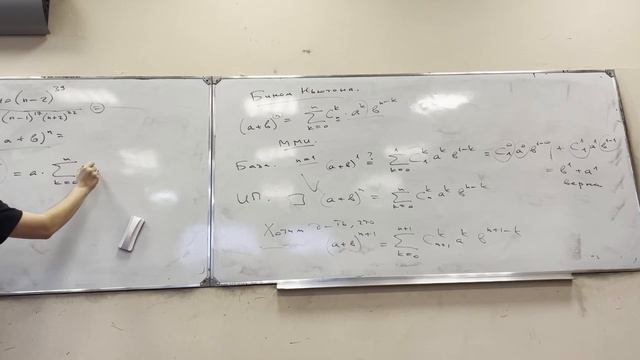 (n-2)³⁹
(n-1)¹⁷(n+2)²² =
a+b)ⁿ =
= a · ∑ₖ₌₀ⁿ
Бином Ньютона.
(a+b)ⁿ = ∑ₖ₌₀ⁿ Cₙᵏ · aᵏ bⁿ⁻ᵏ
ММИ.
База: n=1 (a+b)¹ ?= ∑ₖ₌₀¹ C₁ᵏ aᵏ b¹⁻ᵏ = C₁⁰ a⁰ b¹⁻⁰ + C₁¹ a¹ b¹⁻¹
= b¹ + a¹
верно
ИП. (a+b)ⁿ = ∑ₖ₌₀ⁿ Cₙᵏ aᵏ bⁿ⁻ᵏ
Хотим что
(a+b)ⁿ⁺¹ = ∑ₖ₌₀ⁿ⁺¹ Cₙ₊₁ᵏ aᵏ bⁿ⁺¹⁻ᵏ